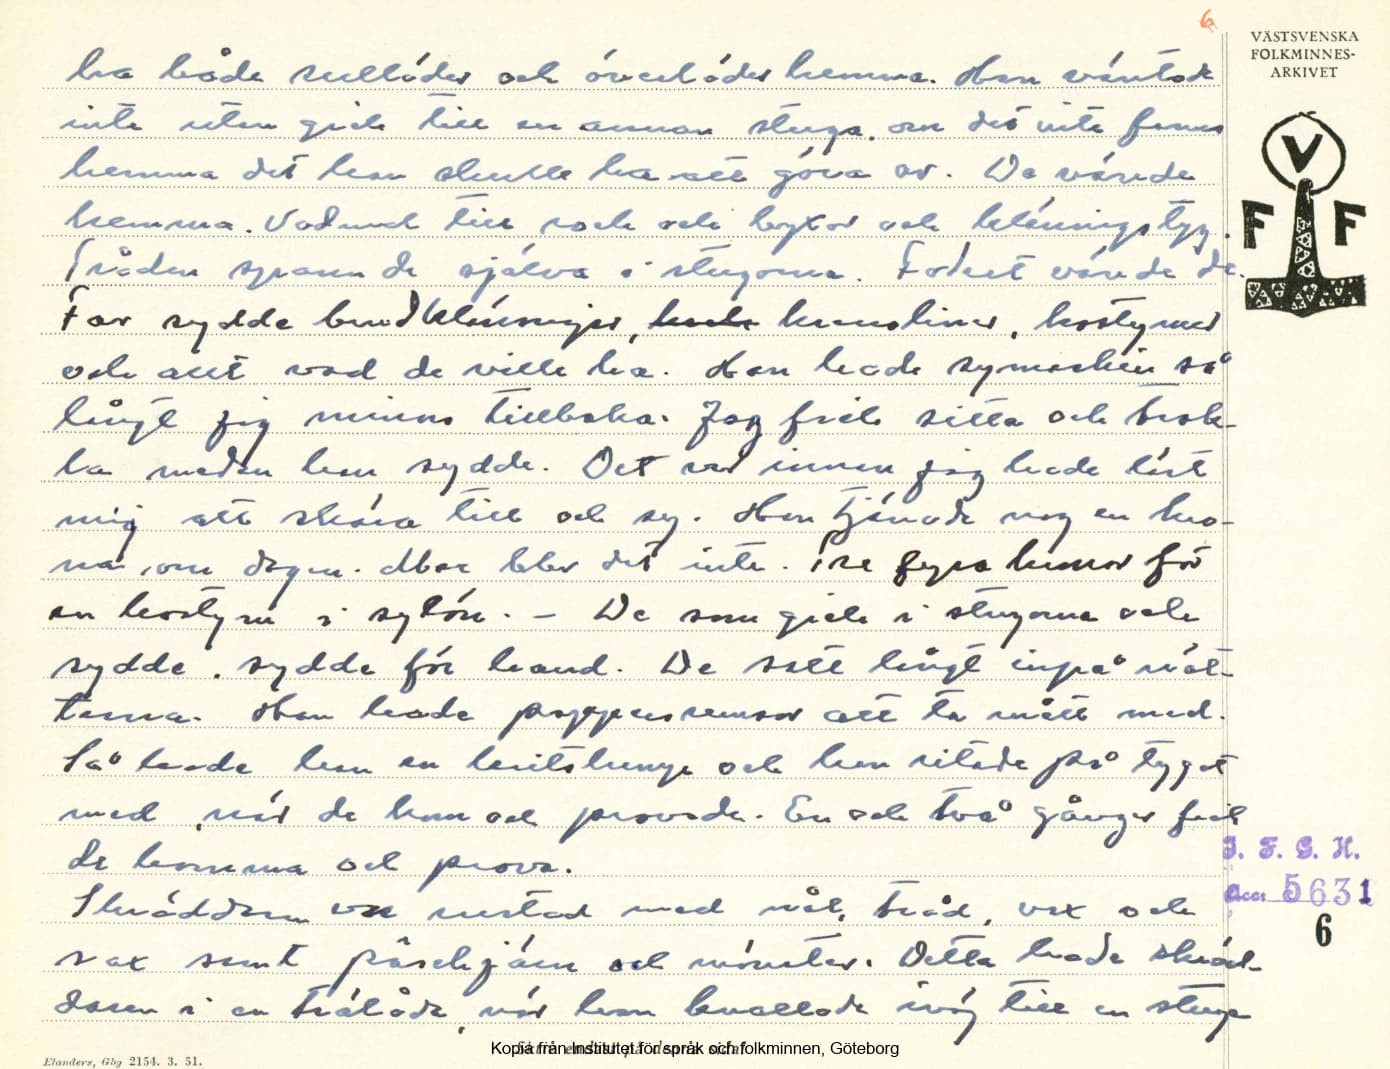 6
VÄSTSVENSKA
FOLKMINNES-
ARKIVET
V
F F
ha både sulläder och överläder hemma. Han väntade
inte utan gick till en annan stuga, om det inte fanns
hemma det han skulle ha att göra av. De vävde
hemma. Vadmal till rock och byxor och klänningstyg.
Tråden spann de själva i stugorna. Fodret vävde de.
Far sydde brudklänningar, krinoliner, kostymer
och allt vad de ville ha. Han hade symaskin så
långt jag minns tillbaka. Jag fick sitta och trak-
la medan han sydde. Det var innan jag hade lärt
mig att skära till och sy. Han tjänade nog en kro-
na om dagen. Mer blev det inte. Tre fyra kronor för
en kostym i sylön. – De som gick i stugorna och
sydde, sydde för hand. De satt långt inpå nät-
terna. Han hade pappersremsor att ta mått med.
Så hade han en kritslunga och han ritade på tyget
med, när de kom och provade. En och två gånger fick
de komma och prova.
Skräddaren var rustad med nål, tråd, vax och
sax samt pärsejärn och mönster. Detta hade skräd-
daren i en trälåda, när han knallade iväg till en stuga
I. F. G. H.
Acc: 5631
6
Elanders, Gbg 2154. 3. 51.
Kopia från Institutet för språk och folkminnen, Göteborg